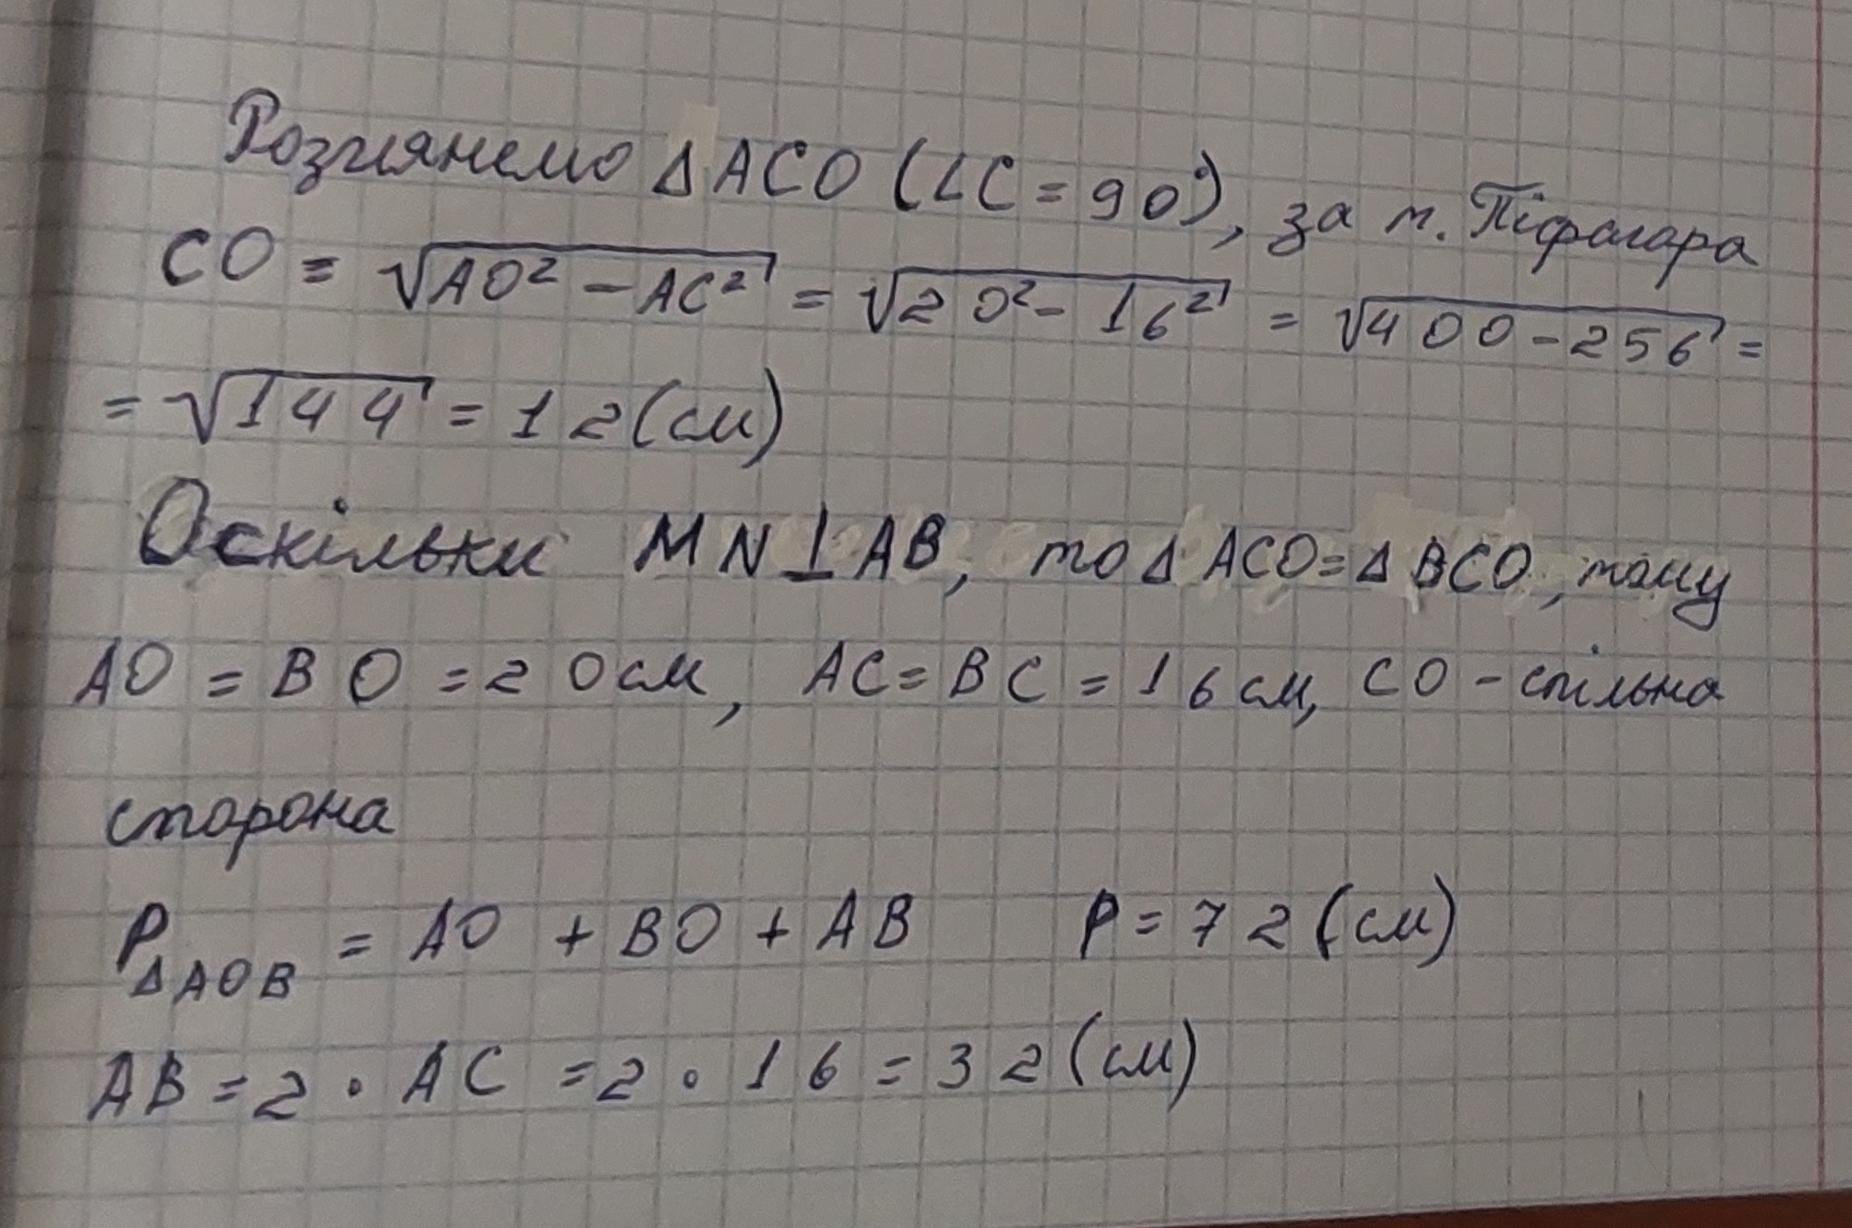 Розглянемо Δ ACO (∠C = 90°), за т. Піфагора
CO = √(AO² - AC²) = √(20² - 16²) = √(400 - 256) =
= √144 = 12 (см)
Оскільки MN ⊥ AB, то Δ ACO = Δ BCO, тому
AO = BO = 20 см, AC = BC = 16 см, CO - спільна
сторона
P ΔAOB = AO + BO + AB P = 72 (см)
AB = 2 · AC = 2 · 16 = 32 (см)